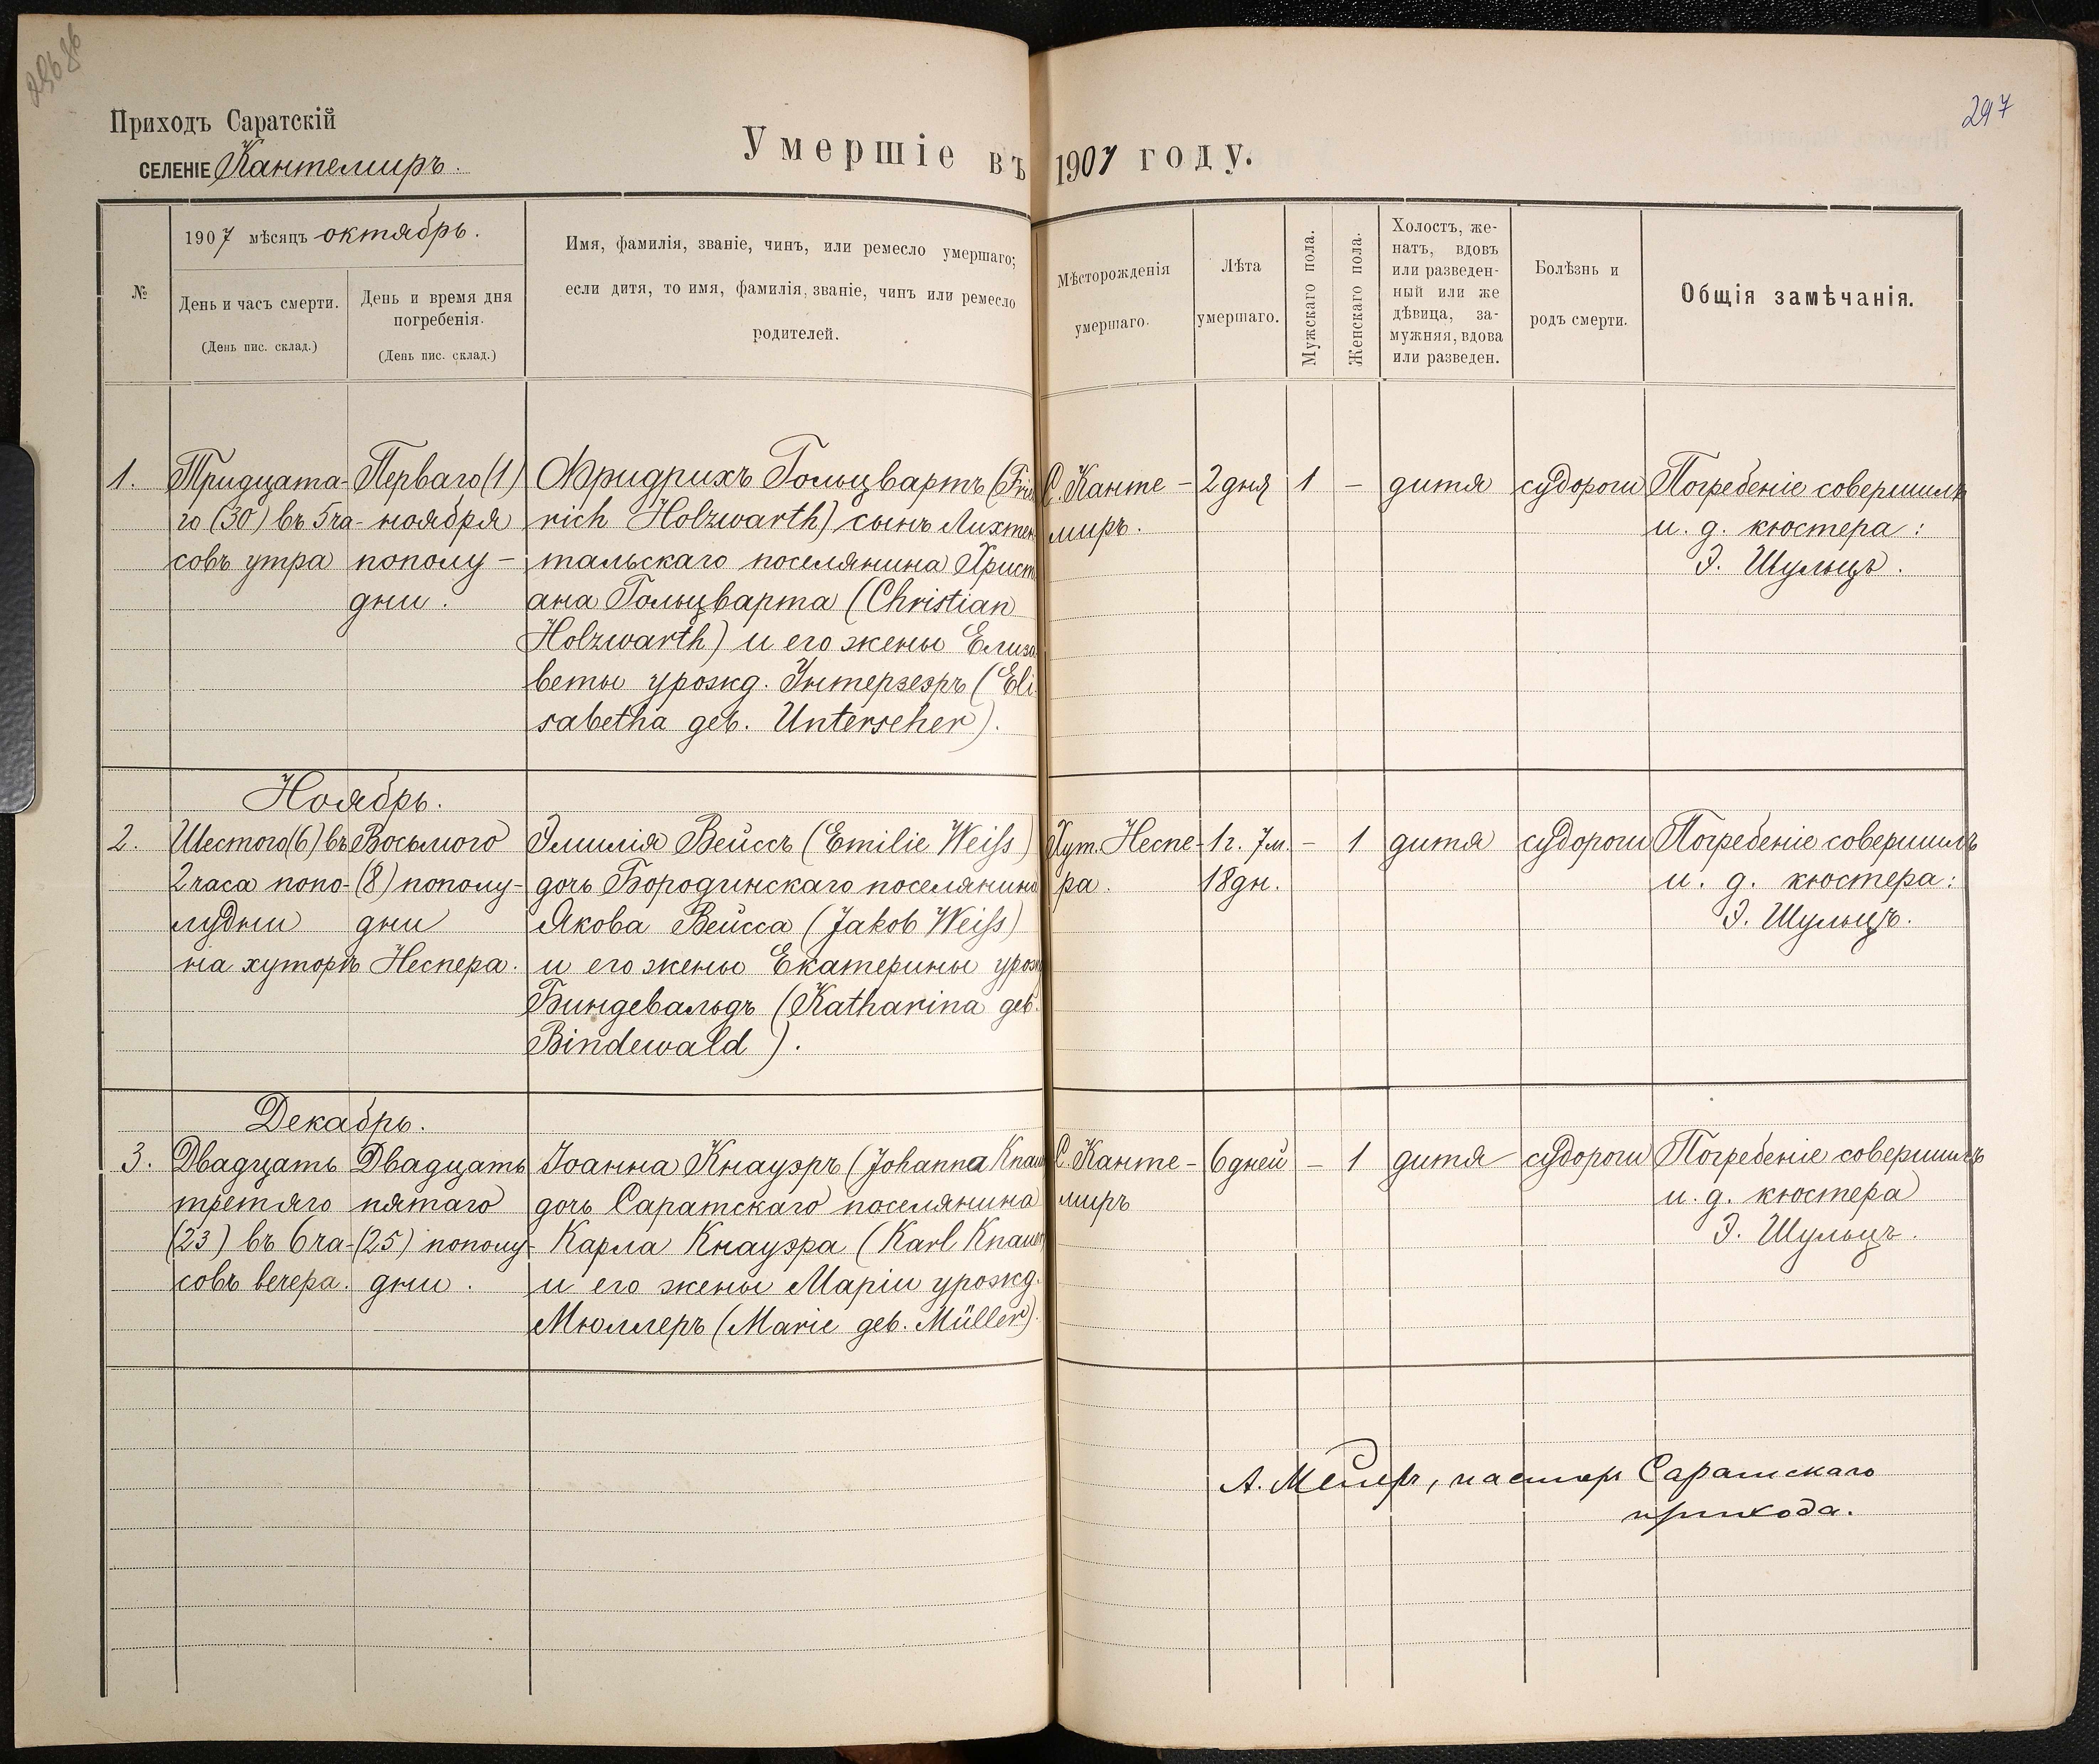 297
Приходъ Саратскій
СЕЛЕНІЕ Кантемиръ.
Умершіе въ 1907 году.
№
1907 мѣсяцъ октябрь.
День и часъ смерти.
(День пис. склад.)
День и время дня
погребенія.
(День пис. склад.)
Имя, фамилія, званіе, чинъ, или ремесло умершаго;
если дитя, то имя, фамилія, званіе, чинъ или ремесло
родителей.
Мѣсторожденія
умершаго.
Лѣта
умершаго.
Мужскаго пола.
Женскаго пола.
Холостъ, же-
натъ, вдовъ
или разведен-
ный или же
дѣвица, за-
мужняя, вдова
или разведен.
Болѣзнь и
родъ смерти.
Общія замѣчанія.
1.
Тридцата-
го (30) въ 5 ча-
совъ утра
Перваго (1)
ноября
пополу-
дни.
Фридрихъ Гольцвартъ (Fried
rich Holzwarth) сынъ Лихтен
тальскаго поселянина Христ
ана Гольцварта (Christian
Holzwarth) и его жены Елиза
веты урожд. Унтерзеэръ (Eli
sabetha geb. Unterseher).
С. Канте-
миръ.
2 дня
1
-
дитя
судороги
Погребеніе совершилъ
и. д. кюстера:
Э. Шульцъ.
Ноябрь.
2.
Шестого (6) въ
2 часа попо-
лудни
на хуторѣ Неспера.
Восьмого
(8) пополу-
дни
Эмилія Вейссъ (Emilie Weiß)
дочь Бородинскаго поселянина
Якова Вейсса (Jakob Weiß)
и его жены Екатерины урожд
Биндевальдъ (Katharina geb.
Bindewald).
Хут. Неспе-
ра.
1 г. 7 м.
18 дн.
-
1
дитя
судороги
Погребеніе совершилъ
и. д. кюстера:
Э. Шульцъ.
Декабрь.
3.
Двадцать
третяго
(23) въ 6 ча-
совъ вечера.
Двадцать
пятаго
(25) пополу-
дни.
Іоанна Кнауэръ (Johanna Knau
дочь Саратскаго поселянина
Карла Кнауэра (Karl Knauer
и его жены Маріи урожд.
Мюллеръ (Marie geb. Müller).
С. Канте-
миръ
6 дней
-
1
дитя
судороги
Погребеніе совершилъ
и. д. кюстера
Э. Шульцъ.
А. Мейеръ, пасторъ Саратскаго
прихода.